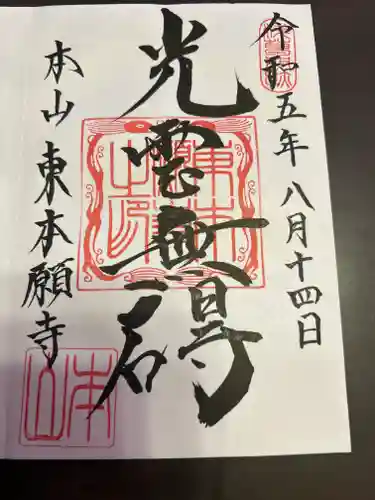 令和五年 八月十四日
光雲無碍
本山 東本願寺
東本願寺之印
本山